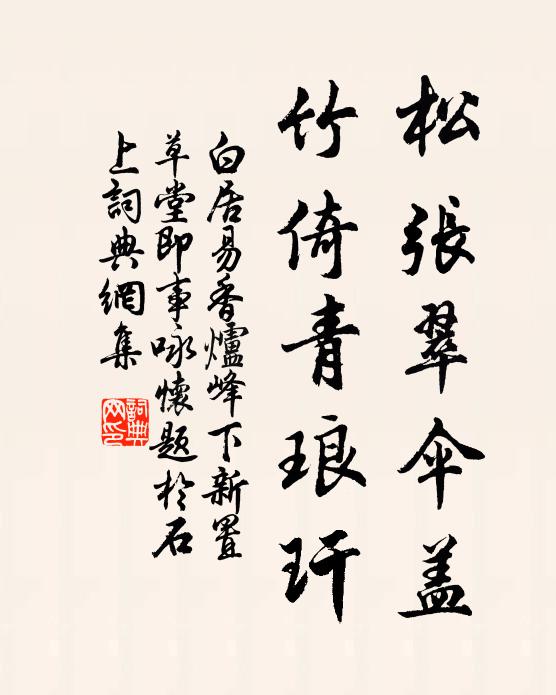 松張翠伞盖
竹倚青琅玕
白居易香爐峰下新置
草堂即事咏懷題於石
上詞典網集
詞典網印